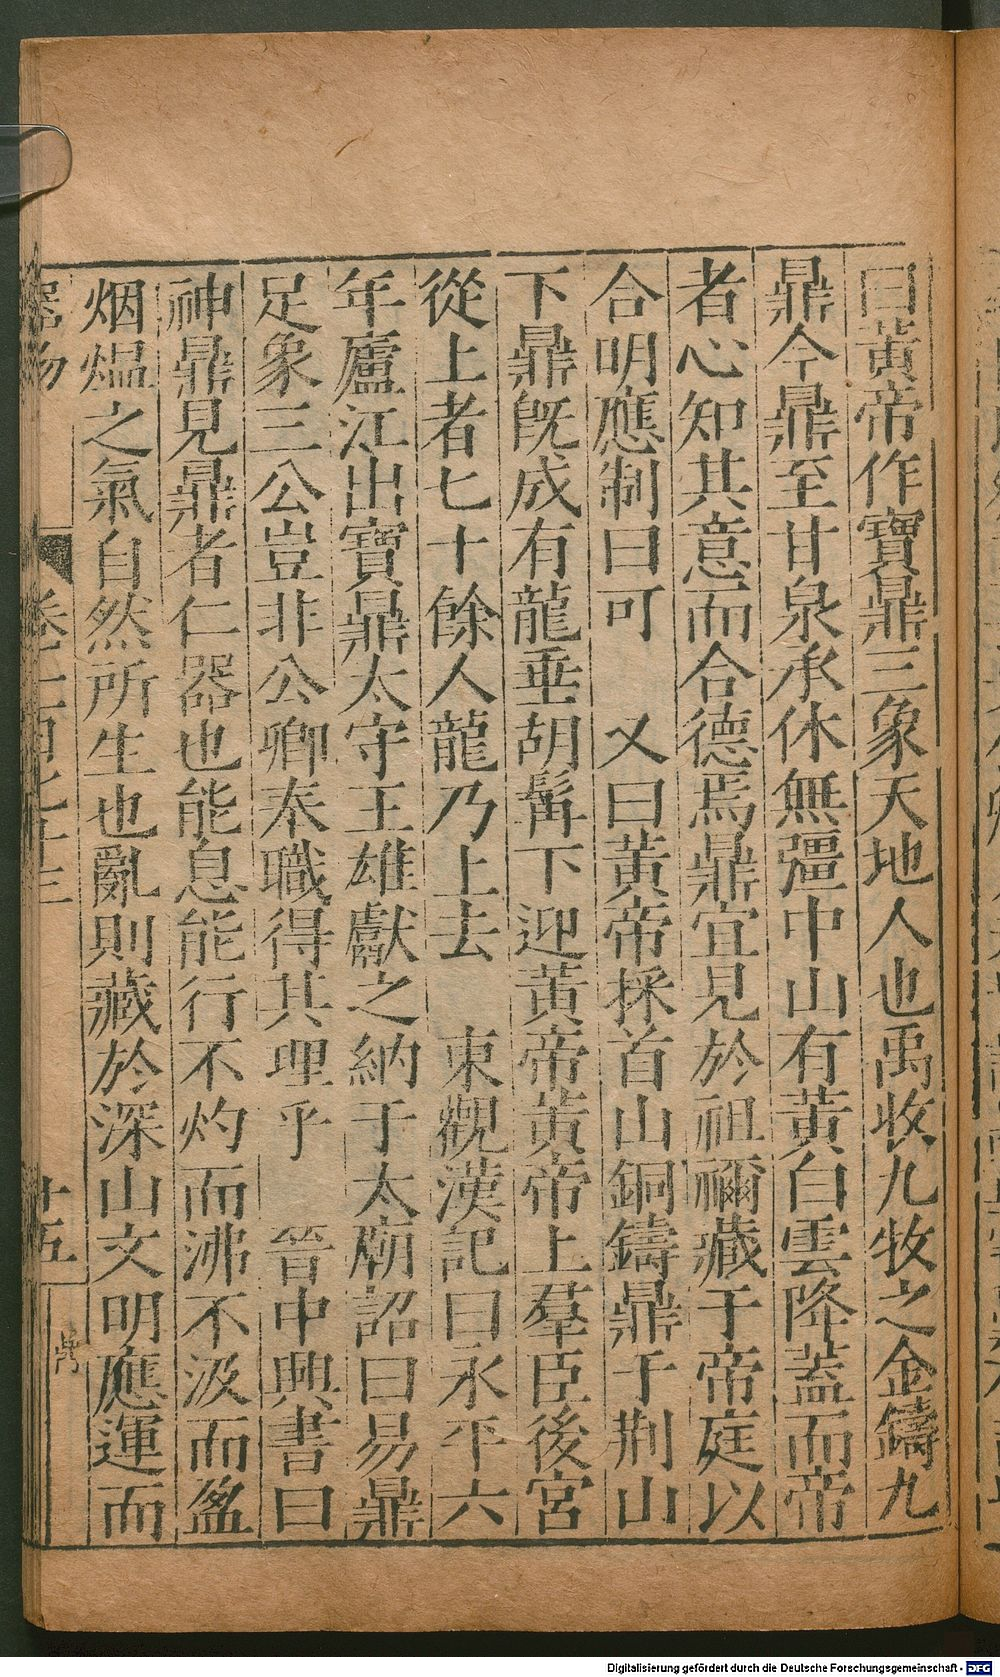 曰黃帝作寶鼎三象天地人也禹收九牧之金鑄九
鼎今鼎至甘泉承休無疆中山有黃白雲降蓋而帝
者心知其意而合德焉鼎宜見於祖禰藏于帝庭以
合明應制曰可　又曰黃帝採首山銅鑄鼎于荆山
下鼎旣成有龍垂胡髯下迎黃帝黃帝上羣臣後宮
從上者七十餘人龍乃上去　東觀漢記曰永平六
年廬江出寶鼎太守王雄獻之納于太廟詔曰易鼎
足象三公豈非公卿奉職得其理乎　晉中興書曰
神鼎見鼎者仁器也能息能行不灼而沸不汲而盈
烟熅之氣自然所生也亂則藏於深山文明應運而
器物
十五
Digitalisierung gefördert durch die Deutsche Forschungsgemeinschaft - DFG